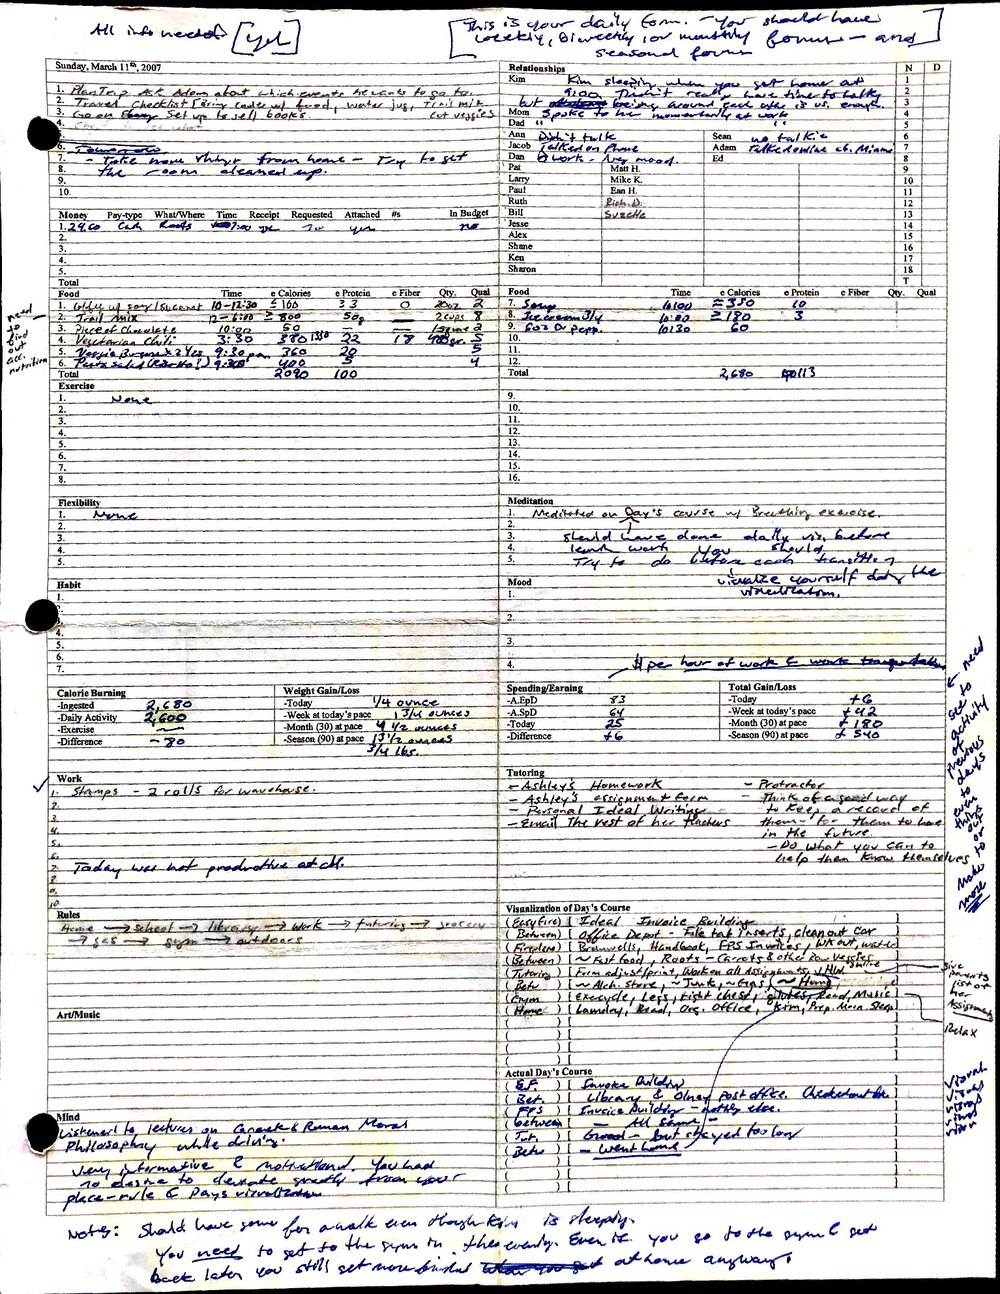 All info needed [yet]
[This is your daily form. - You should have
weekly, Biweekly, or monthly forms - and
seasonal forms]
Sunday, March 11th, 2007
1. Plan Trip. Ask Adam about which events he wants to go to.
2. Travel Checklist [Bring cooler w/ food, water jug, Trail mix
3. Go on Ebay Set up to sell books cut veggies
4.
6. Tomorrow
7. - Take more things from home - Try to get
8. the room cleaned up.
9.
10.
Money Pay-type What/Where Time Receipt Requested Attached #s In Budget
1. 29.60 Cash Roots 7:00 yes no yes no
2.
3.
4.
5.
Total
Food Time e Calories e Protein e Fiber Qty. Qual
1. Coffee w/ soy/sucanat 10-12:30 ≤ 100 ≥ 3 0 20oz 2
2. Trail mix 12-6:00 ≥ 800 50g — 2 cups 8
3. Piece of chocolate 10:00 50 — — 1 square 2
4. Vegetarian Chili 3:30 380 1330 22 18 gr. 5
5. Veggie Burger x 2 9:30pm 360 20 5
6. Pasta salad 9:30 400 5 4
Total 2090 100
need to find out all nutrition
Exercise
1. None
2.
3.
4.
5.
6.
7.
8.
Flexibility
1. None
2.
3.
4.
5.
Habit
1.
2.
3.
4.
5.
6.
7.
Calorie Burning
-Ingested 2,680
-Daily Activity 2,600
-Exercise —
-Difference - 80
Weight Gain/Loss
-Today 1/4 ounce
-Week at today's pace 1 3/4 ounces
-Month (30) at pace 4 1/2 ounces
-Season (90) at pace 13 1/2 ounces
3/4 lbs.
Work
1. Stamps - 2 rolls for warehouse.
2.
3.
4.
5.
6.
7. Today was not productive at all.
8.
9.
10
Rules
Home → school → library → work → tutoring → grocery
→ gas → gym → outdoors
Art/Music
Mind
Listened to lectures on Greek & Roman Moral
Philosophy while driving.
Very informative & motivational. You had
no desire to deviate greatly from your
place-rule & Days visualization
Relationships N D
Kim Kim sleeping when you get home at 1
9:00. Didn't really have time to talk 2
but being around each other is us. enough. 3
Mom Spoke to her momentarily at work 4
Dad " " 5
Ann Didn't talk Sean no talkie 6
Jacob Talked on Phone Adam Talked online ab. Miami 7
Dan @ work - Ed 8
Pat Matt H. 9
Larry Mike K. 10
Paul Ean H. 11
Ruth Rich D. 12
Bill Suzette 13
Jesse 14
Alex 15
Shane 16
Ken 17
Sharon 18
T
Food Time e Calories e Protein e Fiber Qty. Qual
7. Soup 10:00 ≈ 350 10
8. Ice cream 10:00 ≥ 180 3
9. 6oz Dr pepp. 10:30 60
10.
11.
12.
Total 2,680 113
9.
10.
11.
12.
13.
14.
15.
16.
Meditation
1. Meditated on Day's course w/ Breathing exercise.
2.
3. should have done daily vis. before
4. leaving work You should
5. Try to do before each transition
visualize yourself doing the
visualization.
Mood
1.
2.
3.
4. $ per hour of work & work transportation
Spending/Earning
-A.EpD 83
-A.SpD 64
-Today 25
-Difference +6
Total Gain/Loss
-Today +6
-Week at today's pace + 42
-Month (30) at pace + 180
-Season (90) at pace + 540
← need see to activity of previous days to even things out or make more
Tutoring
- Ashley's Homework
- Ashley's assignment form
- Personal Ideal Writing
- Email The rest of her teachers
- Protractor
- Think of a good way
to keep a record of
them - for them to have
in the future.
- Do what you can to
help them know themselves
Visualization of Day's Course
(Easyfire) [ Ideal Invoice Building ]
(Between) [ Office Depot - File tab inserts, clean out car
(Fireplace) [ Brownwells, Handbook, FPS Invoices, Wkout, water
(Between) [ ~ Fast food, Roots - Carrots & other raw veggies
(Tutoring) [ Form adjust/print, Work on all Assignments, online
(Betw) [ ~ Alch. store, ~ Junk, ~ Gas, (~ Home)
(Gym) [ Execycle, Legs, Light chest, glutes, Read, Music ]
(Home) [ Laundry, Read, Org. Office, Kim, Prep. Mon. Sleep ]
Give parents list of her Assignments
Relax
Actual Day's Course
(E.F.) [ Invoice Building
(Bet.) [ Library & Olney Post office.
(FPS) [ Invoice Building - nothing else.
(between) [ - All same -
(Tut.) [ Good - but stayed too long
(Betw) [ - Went home
Notes: Should have gone for a walk even though Kim is sleepy.
You need to get to the gym in the evening. Even if you go to the gym & get
back later you still get more finished at home anyways